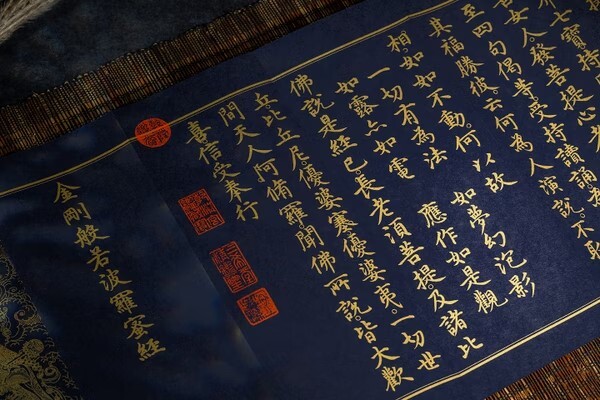 七寶持
女人發菩提心者
至四句偈等受持讀誦為
其福勝彼。云何為人演說。不取
相。如如不動。何以故
一切有為法　如夢幻泡影
如露亦如電　應作如是觀
佛說是經已。長老須菩提。及諸比
丘比丘尼優婆塞優婆夷。一切世
間天人阿脩羅。聞佛所說。皆大歡
喜信受奉行
金剛般若波羅蜜經